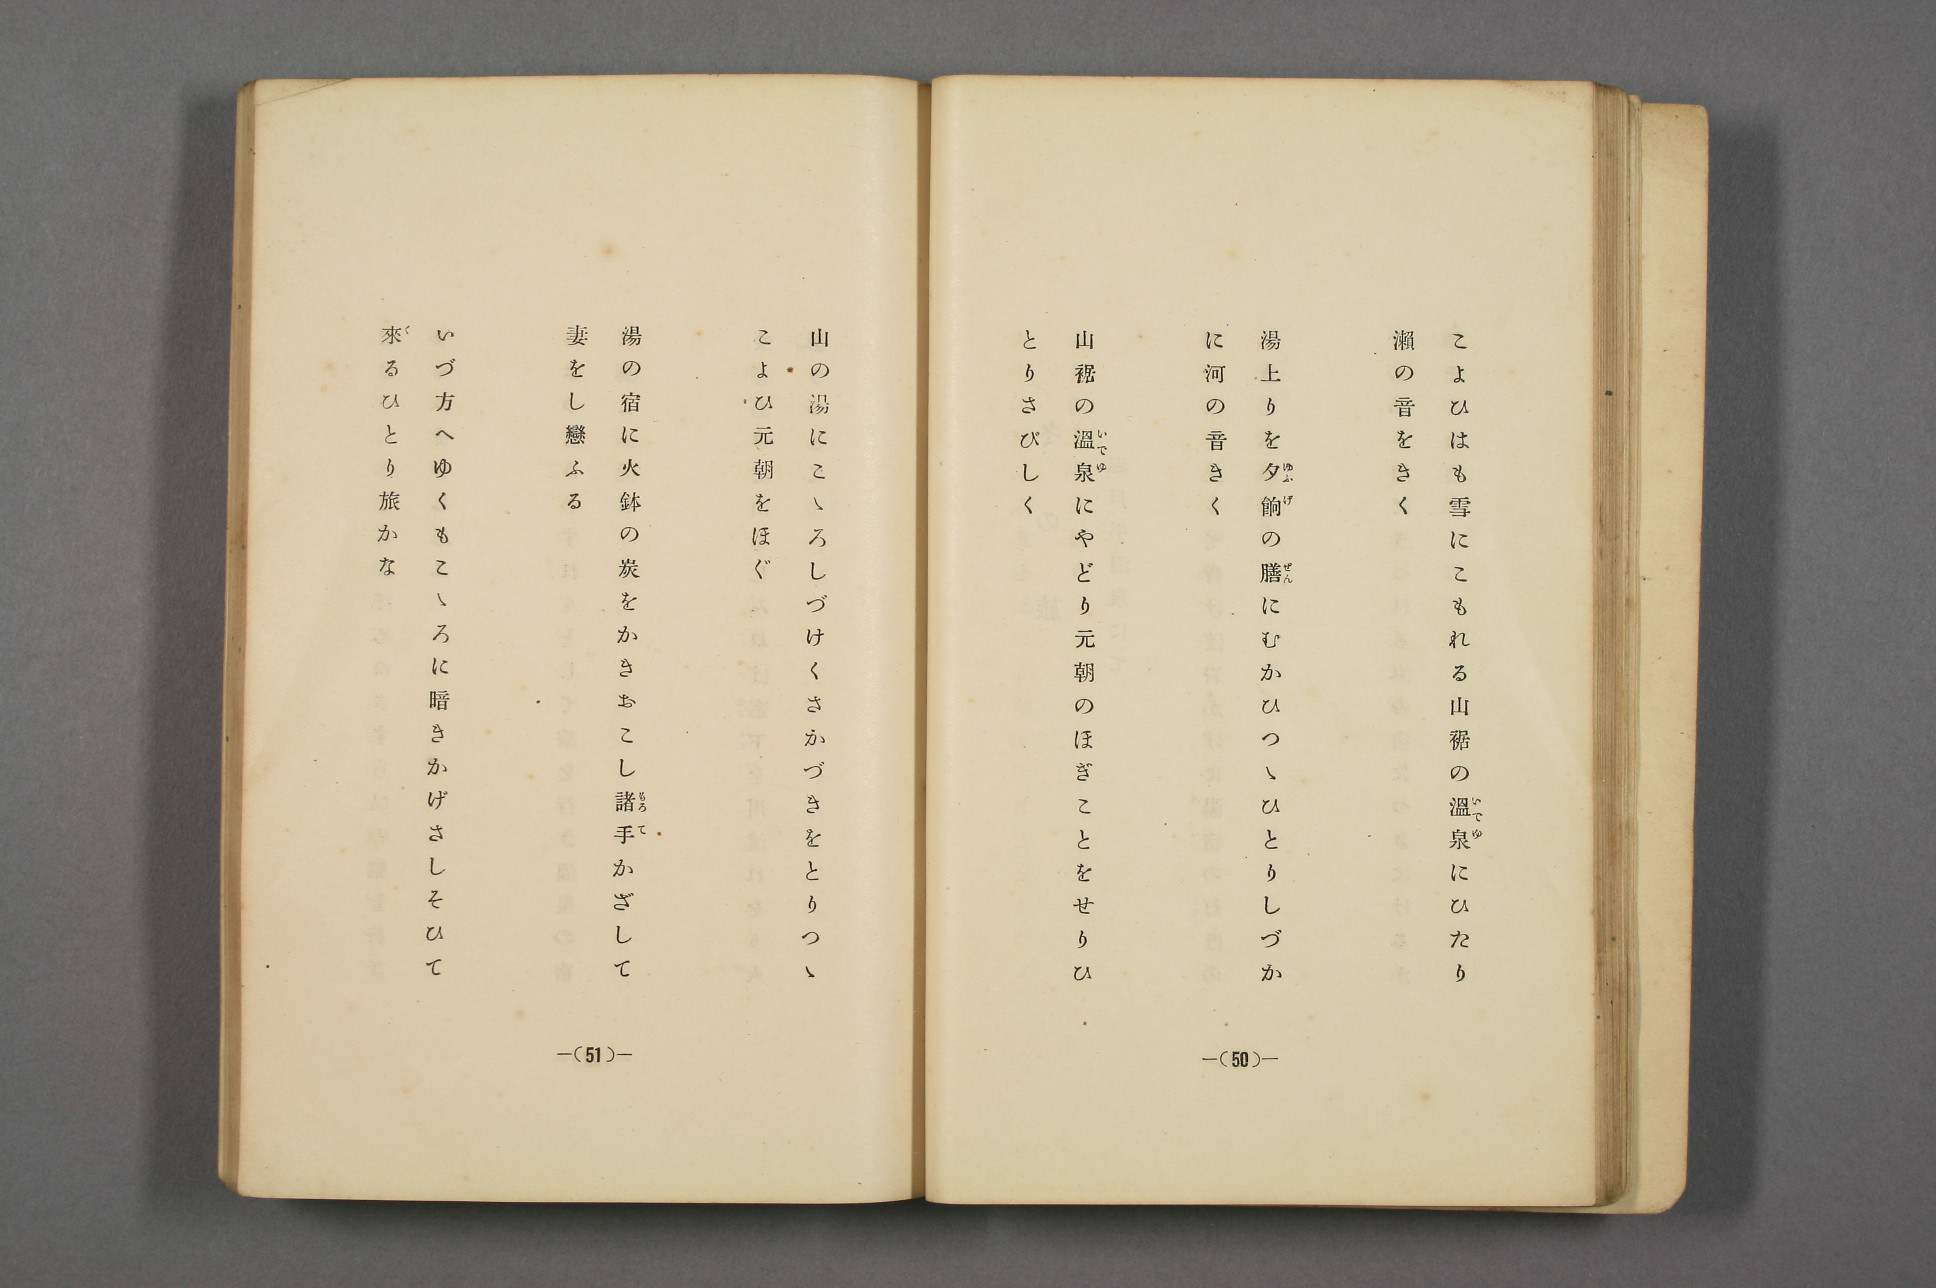 こよひはも雪にこもれる山裾の溫泉にひたり
瀨の音をきく
湯上りを夕餉の膳にむかひつゝひとりしづか
に河の音きく
山裾の溫泉にやどり元朝のほぎことをせりひ
とりさびしく
—(50)—
山の湯にこゝろしづけくさかづきをとりつゝ
こよひ元朝をほぐ
湯の宿に火鉢の炭をかきおこし諸手かざして
妻をし戀ふる
いづ方へゆくもこゝろに暗きかげさしそひて
來るひとり旅かな
—(51)—